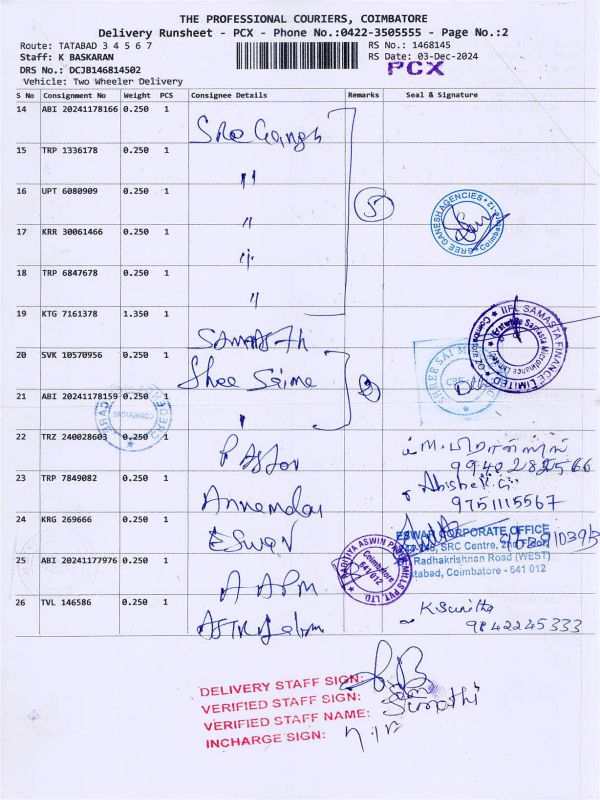 THE PROFESSIONAL COURIERS, COIMBATORE
Delivery Runsheet - PCX - Phone No.:0422-3505555 - Page No.:2
Route: TATABAD 3 4 5 6 7
RS No.: 1468145
Staff: K BASKARAN
RS Date: 03-Dec-2024
DRS No.: DCJB146814502
PCX
Vehicle: Two Wheeler Delivery
S No Consignment No Weight PCS Consignee Details Remarks Seal & Signature
14 ABI 20241178166 0.250 1
Sree Gangesh
15 TRP 1336178 0.250 1
"
16 UPT 6080909 0.250 1
5
SREE GANESH AGENCIES
Coimbatore-12
"
17 KRR 30061466 0.250 1
"
18 TRP 6847678 0.250 1
"
19 KTG 7161378 1.350 1
IIFL SAMASTA FINANCE LIMITED
SAMASTH
20 SVK 10570956 0.250 1
Shree Saime
SHREE SAI
21 ABI 20241178159 0.250 1
2
"
22 TRZ 240028603 0.250 1
PASTOR
99402 82566
23 TRP 7849082 0.250 1
Abishek.G
Annamalai
9751115567
24 KRG 269666 0.250 1
ESWAR
ESWAR CORPORATE OFFICE
SRC Centre, 2nd Floor
Radhakrishnan Road (WEST)
Tatabad, Coimbatore - 641 012
25 ABI 20241177976 0.250 1
AADITYA ASWIN PAPER MILLS PVT. LTD
Coimbatore
641 012
AAPM
26 TVL 146586 0.250 1
K Sunitha
9842245333
DELIVERY STAFF SIGN:
VERIFIED STAFF SIGN:
VERIFIED STAFF NAME: Sumathi
INCHARGE SIGN: